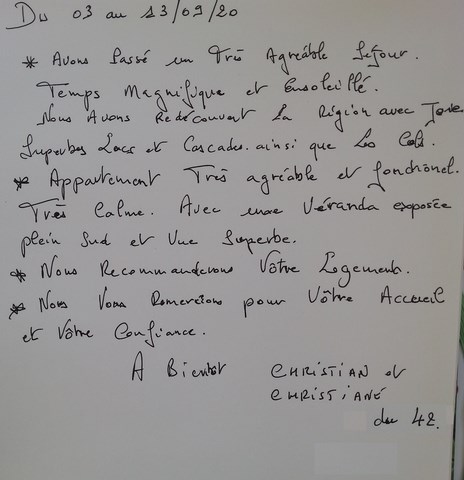 Du 03 au 13/09/20
* Avons Passé un Très Agréable Séjour.
Temps Magnifique et Ensoleillé.
Nous Avons Redécouvert La Région avec
Superbes Lacs et Cascades. ainsi que Les Cols.
* Appartement Très agréable et fonctionel.
Très Calme. Avec une Véranda exposée
plein Sud et Vue Superbe.
* Nous Recommanderons Vôtre Logement.
* Nous Vous Remercions pour Vôtre Accueil
et Vôtre Confiance.
A Bientôt CHRISTIAN et
CHRISTIANE
du 42.